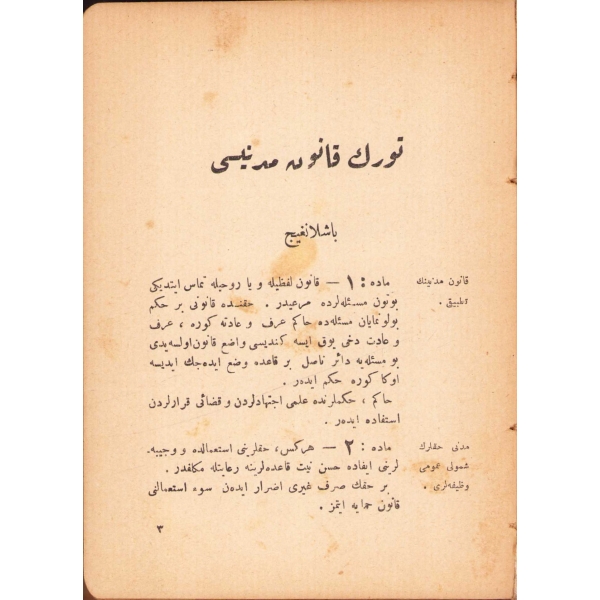 تورك قانون مدنيسی
باشلانغيج
قانون مدنينك
تطبيقی .
ماده : ١ — قانون لفظيله و يا روحيله تماس ايتديكی
بوتون مسئله‌لرده مرعيدر . حقنده قانونی بر حكم
بولونمايان مسئله‌ده حاكم عرف و عادته كوره ، عرف
و عادت دخی يوق ايسه كنديسی واضع قانون اولسه‌يدی
بو مسئله‌يه دائر ناصل بر قاعده وضع ايده‌جك ايديسه
اوكا كوره حكم ايده‌ر .
حاكم ، حكملرنده علمی اجتهادلردن و قضائی قرارلردن
استفاده ايده‌ر .
مدنی حقلرك
شمولی عمومی
وظيفه‌لری .
ماده : ٢ — هركس ، حقلرينی استعمالده و وجيبه‌
لرينی ايفاده حسن نيت قاعده‌لرينه رعايتله مكلفدر .
بر حقك صرف غيری اضرار ايده‌ن سوء استعمالنی
قانون حمايه ايتمز .
٣